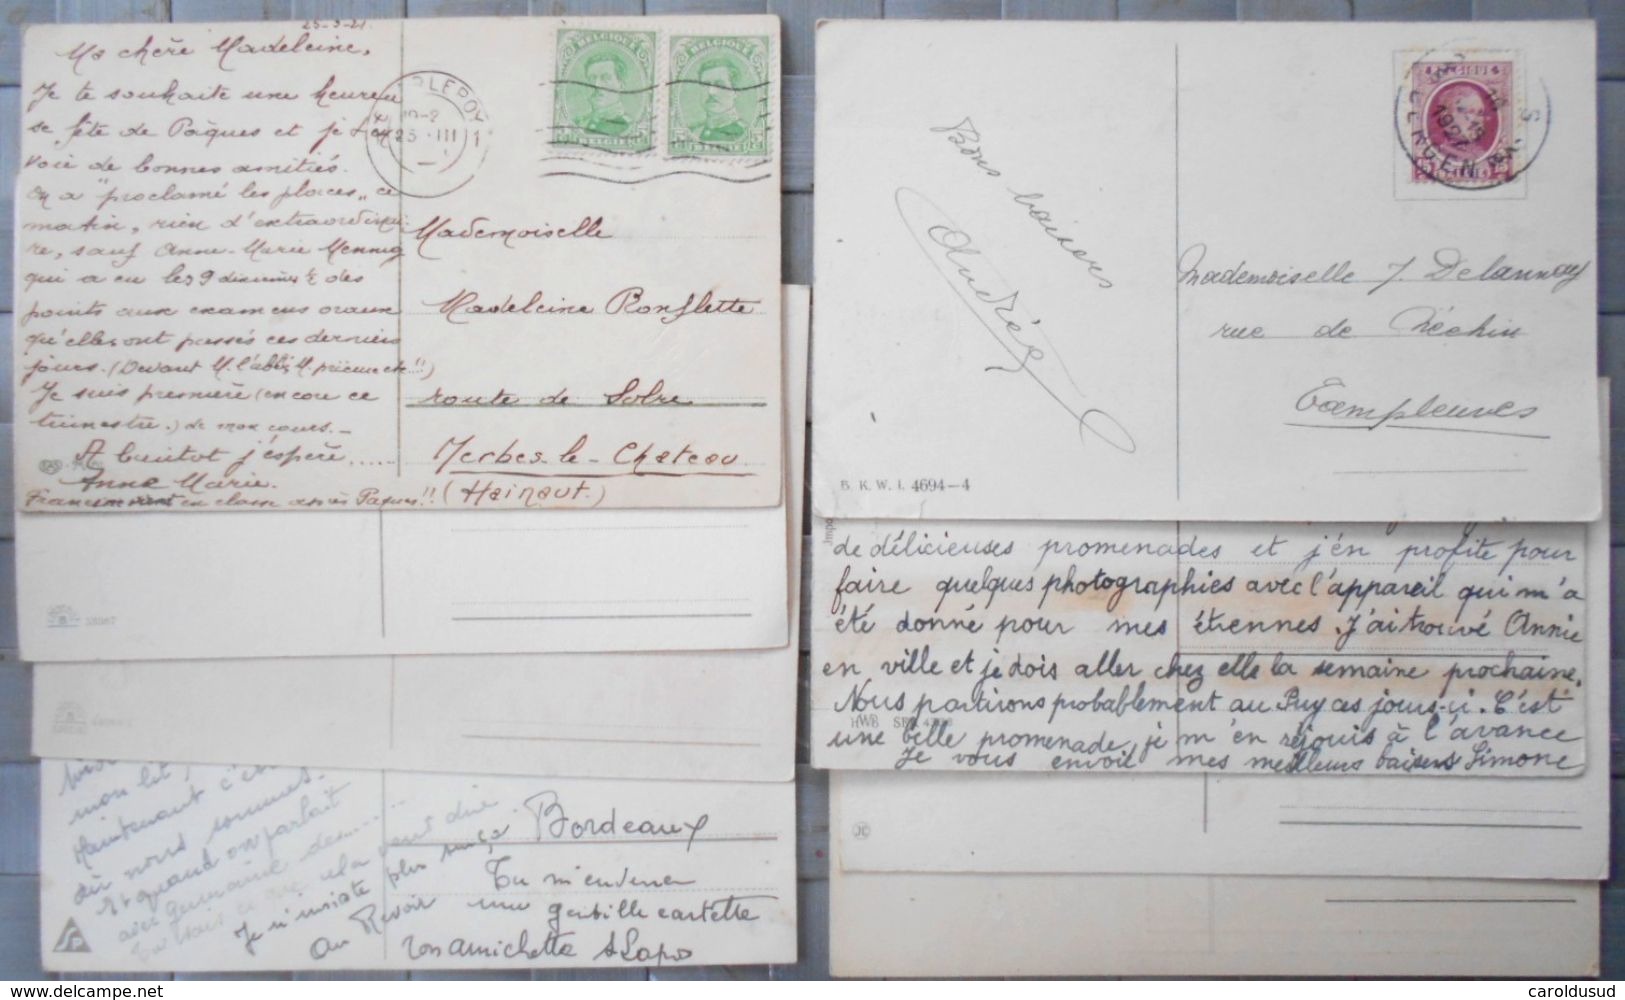 25-3-21
Ma chère Madeleine,
Je te souhaite une heureu
se fête de Pâques et je t'en
voie de bonnes amitiés.
On a "proclamé les places", ce
matin, rien d'extraordinai-
re, sauf Anne-Marie Mennig
qui a eu les 9 dixièmes ½ des
points aux examens oraux
qu'elles ont passés ces derniers
jours. (Devant M. l'abbé, M.
Je suis première (encore ce
trimestre.) de mon cours.-
A bientôt j'espère......
Anne Marie.
en classe après Pâques!!
BELGIQUE
BELGIQUE
BELGIË
BELGIË
Mademoiselle
Madeleine Ronflette
route de Solre
Merbes-le-Chateau
(Hainaut.)
33367
mon lit,
Maintenant c'est
où nous sommes.
Et quand on parlait
avec Germaine des.....
Je n'insiste plus
Au Revoir
Bordeaux
Tu m'enverra
une gentille cartette
ton Amichette
Bons baisers
Andrée
B. K. W. I. 4694-4
1927
Mademoiselle J. Delannoy
rue de Néchin
Templeuves
de délicieuses promenades et j'en profite pour
faire quelques photographies avec l'appareil qui m'a
été donné pour mes étrennes. J'ai trouvé Annie
en ville et je dois aller chez elle la semaine prochaine.
Nous partirons probablement au Puy ces jours-ci. C'est
HWB SER
une belle promenade, je m'en rejouis à l'avance
Je vous envoie mes meilleurs baisers Simone
caroldusud